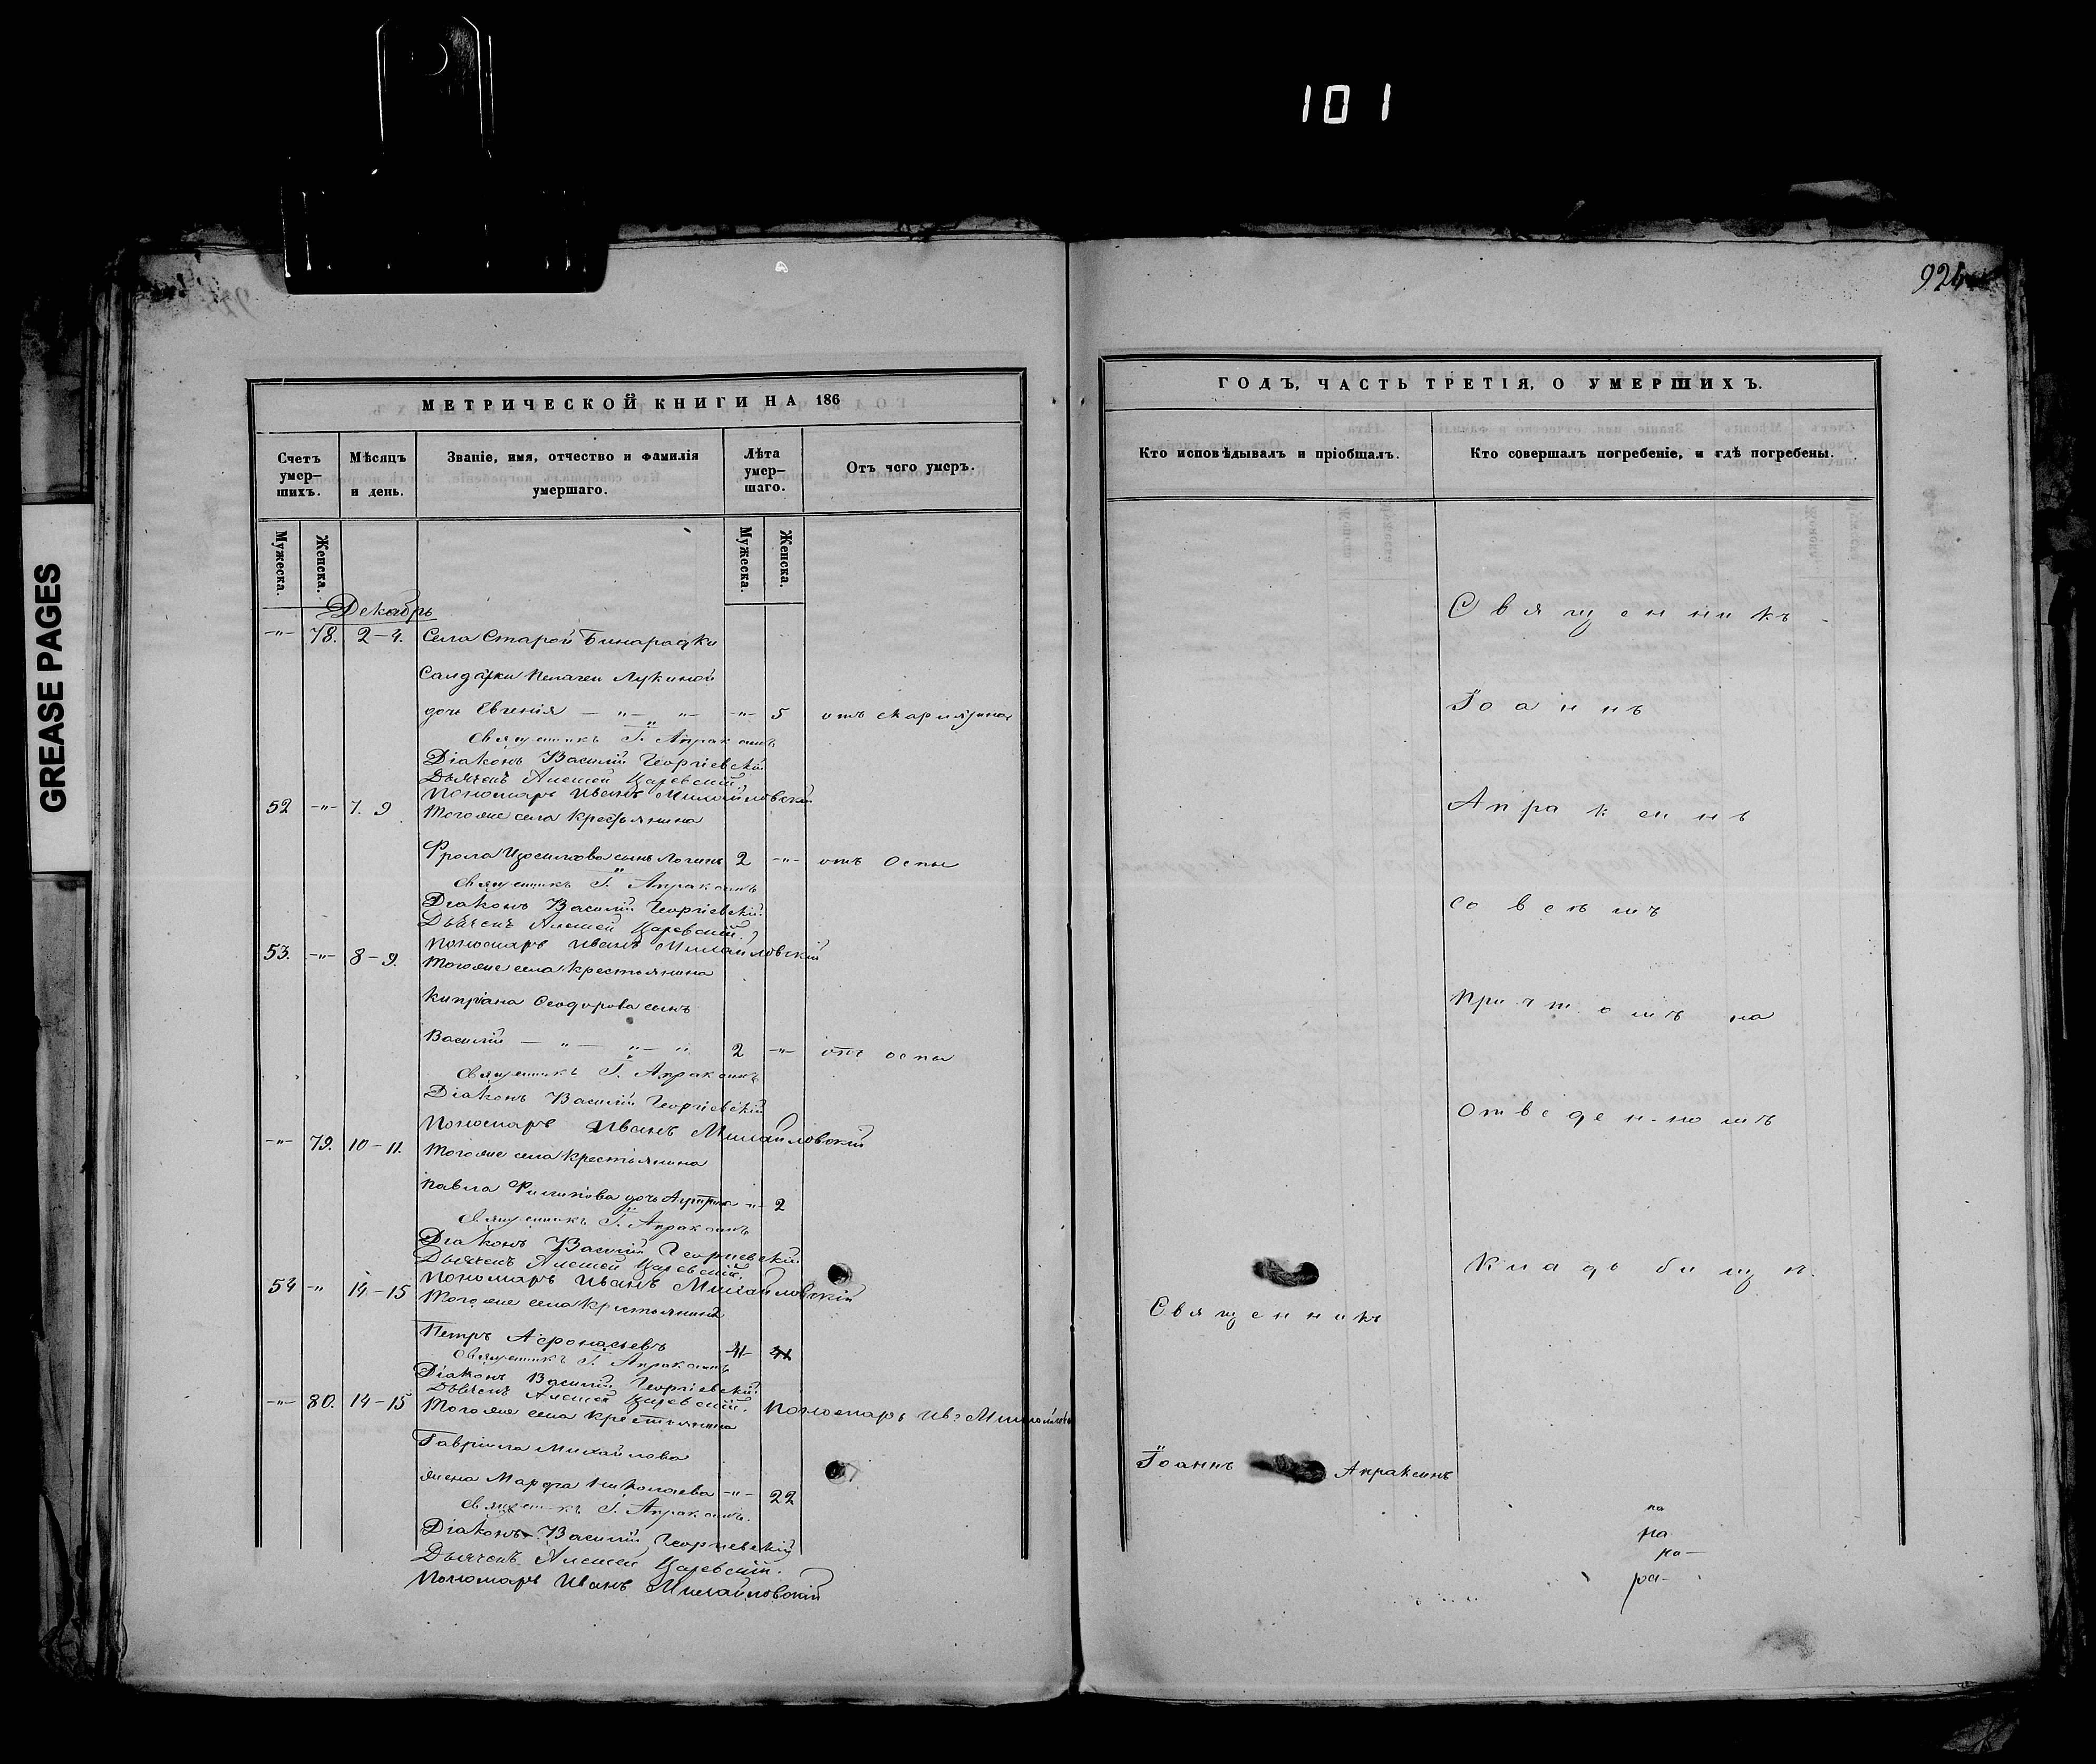 101
GREASE PAGES
924
МЕТРИЧЕСКОЙ КНИГИ НА 186
Счетъ умер—шихъ.
Мѣсяцъ и день.
Званіе, имя, отчество и фамилія умершаго.
Лѣта умер—шаго.
Отъ чего умеръ.
Мужеска.
Женска.
Мужеска.
Женска.
Декабрь
—„— 78. 2–4. Села Старой Бинарадки
Салдатки Пелагеи Лукиной
дочь Евгенія — „ — „ — —„— 5 отъ
Священникъ І. Апраксинъ
Діаконъ Василій Георгіевскій
Дьячекъ Алексей Царевскій.
Пономарь Иванъ Михайловскій
52 —„— 7. 9 Тогоже села Крестьянина
Фрола сынъ Логинъ 2 —„— отъ Оспы
Священникъ І. Апраксинъ
Діаконъ Василій Георгіевскій
Дьячекъ Алексей Царевскій.
Пономарь Иванъ Михайловскій
53. —„— 8–9. Тогоже села Крестьянина
Кипріана Ѳеодорова сынъ
Василій — „ — „ — „ 2 —„— отъ оспы
Священникъ І. Апраксинъ
Діаконъ Василій Георгіевскій
Пономарь Иванъ Михайловскій
—„— 79. 10–11. Тогоже села Крестьянина
Павла Филипова дочь —„— 2
Священникъ І. Апраксинъ
Діаконъ Василій Георгіевскій
Дьячекъ Алексей Царевскій.
Пономарь Иванъ Михайловскій
54 —„ 14–15 Тогоже села Крестьянинъ
Петръ Афонасьевъ
Священникъ І. Апраксинъ
Діаконъ Василій Георгіевскій
Дьячекъ Алексей Царевскій. Пономарь Ив:
—„— 80. 14–15 Тогоже села Крестьянина
Гавріила Михайлова
жена Марфа Николаева —„— 22
Священникъ І. Апраксинъ.
Діаконъ Василій Георгіевскій
Дьячекъ Алексей Царевскій.
Пономарь Иванъ Михайловскій
ГОДЪ, ЧАСТЬ ТРЕТІЯ, О УМЕРШИХЪ.
Кто исповѣдывалъ и пріобщалъ.
Кто совершалъ погребеніе, и гдѣ погребены.
Священникъ
Іоаннъ
Апраксинъ
со всемъ
Причтомъ на
Отведенномъ
Кладбищѣ.
Священникъ
Іоаннъ Апраксинъ